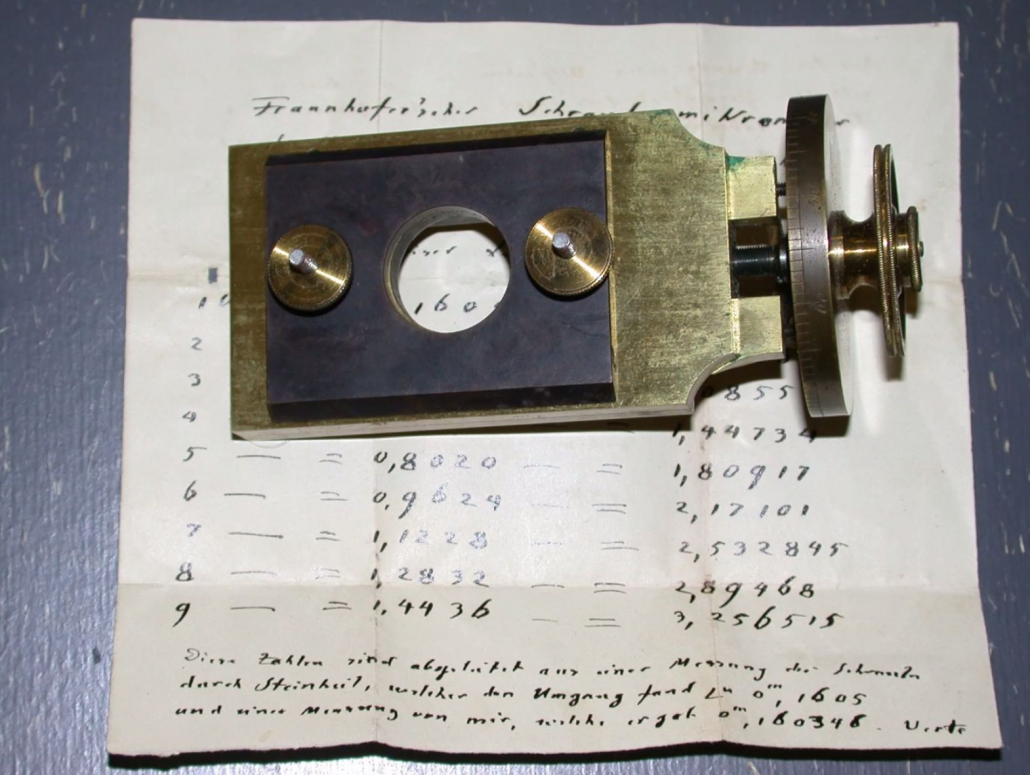 Fraunhofer'scher
160
2
3 855
4 1,44734
5 — = 0,8020 — = 1,80917
6 — = 0,9624 — = 2,17101
7 — = 1,1228 — = 2,532845
8 — = 1,2832 — = 2,89468
9 — = 1,4436 — = 3,256515
Diese Zahlen sind abgeleitet aus einer Messung der Schraube
durch Steinheil, welcher den Umgang fand zu 0m,1605
und einer Messung von mir, welche ergab 0m,160346. Verte